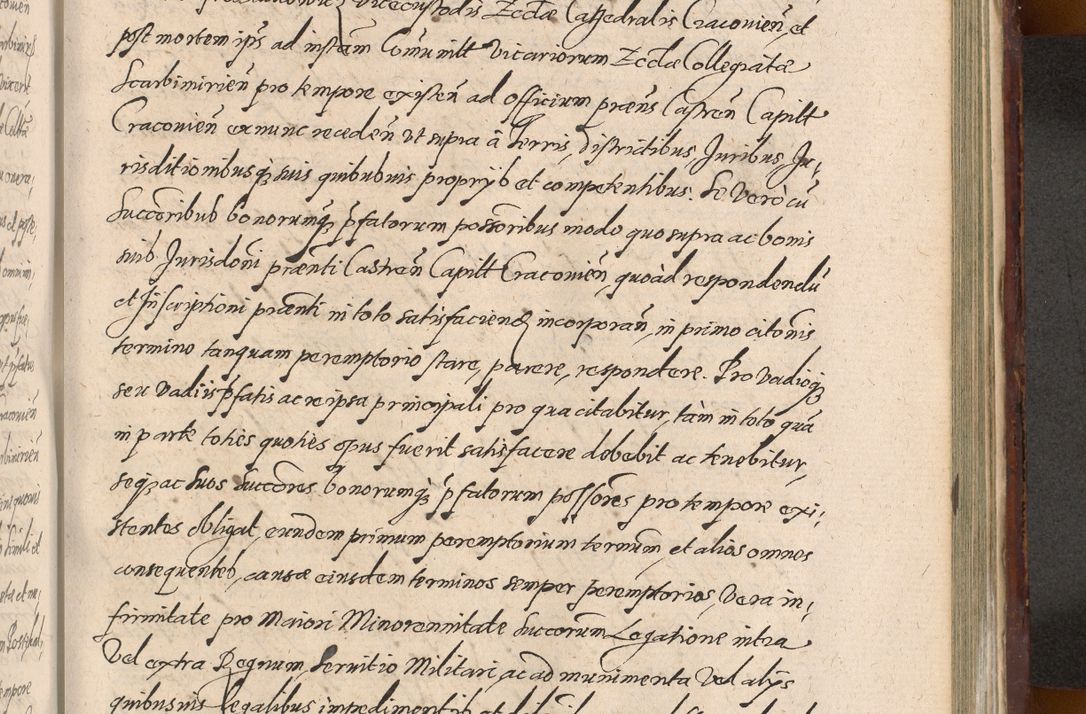 Vicecustodis Eccłæ Cathedralis Cracovieñ, et
post mortem ipsˢ ad instam Comunitt Vicariorum Eccłæ Collegiatæ
Scarbimirieñ pro tempore existeñ ad officium præns Castreñ Capitt
Cracovieñ ex nunc recedeñ ut supra â Terris, districtibus, Juribus, Ju,
risditionibusq3 suis quibusuis proprijs et competentibus. Se Verò cũ
Succoribus bonorumq3 pfatorum possoribus modo quo supra ac bonis
suis Jurisdoni prænti Castreñ Capitt Cracovieñ, quoad respondendũ
et Inscriptioni prænti in toto satisfaciend incorporañ, in primo citonis
termino tanquam peremptorio stare, parere, respondere. Pro Vadioq3
seu Vadiis pfatis ac re ipsa principali pro qua citabitur, tàm in toto quã
in parte toties quoties opus fuerit satisfacere debebit ac tenebitur,
seq3 ac Suos Succores bonorumq3 pfatorum possores pro tempore exi,
stentes obligat, eundem primum peremptorium ternum, et alios omnes
consequentes, causæ eiusdem terminos semper peremptorios, Vera in,
firmitate pro Maiori Minorennitate Succorum Legatione intra
Vel extra Regnum, Servitio Militari, ac ad munimenta Vel alijs
quibusuis legalibus impedimentis et